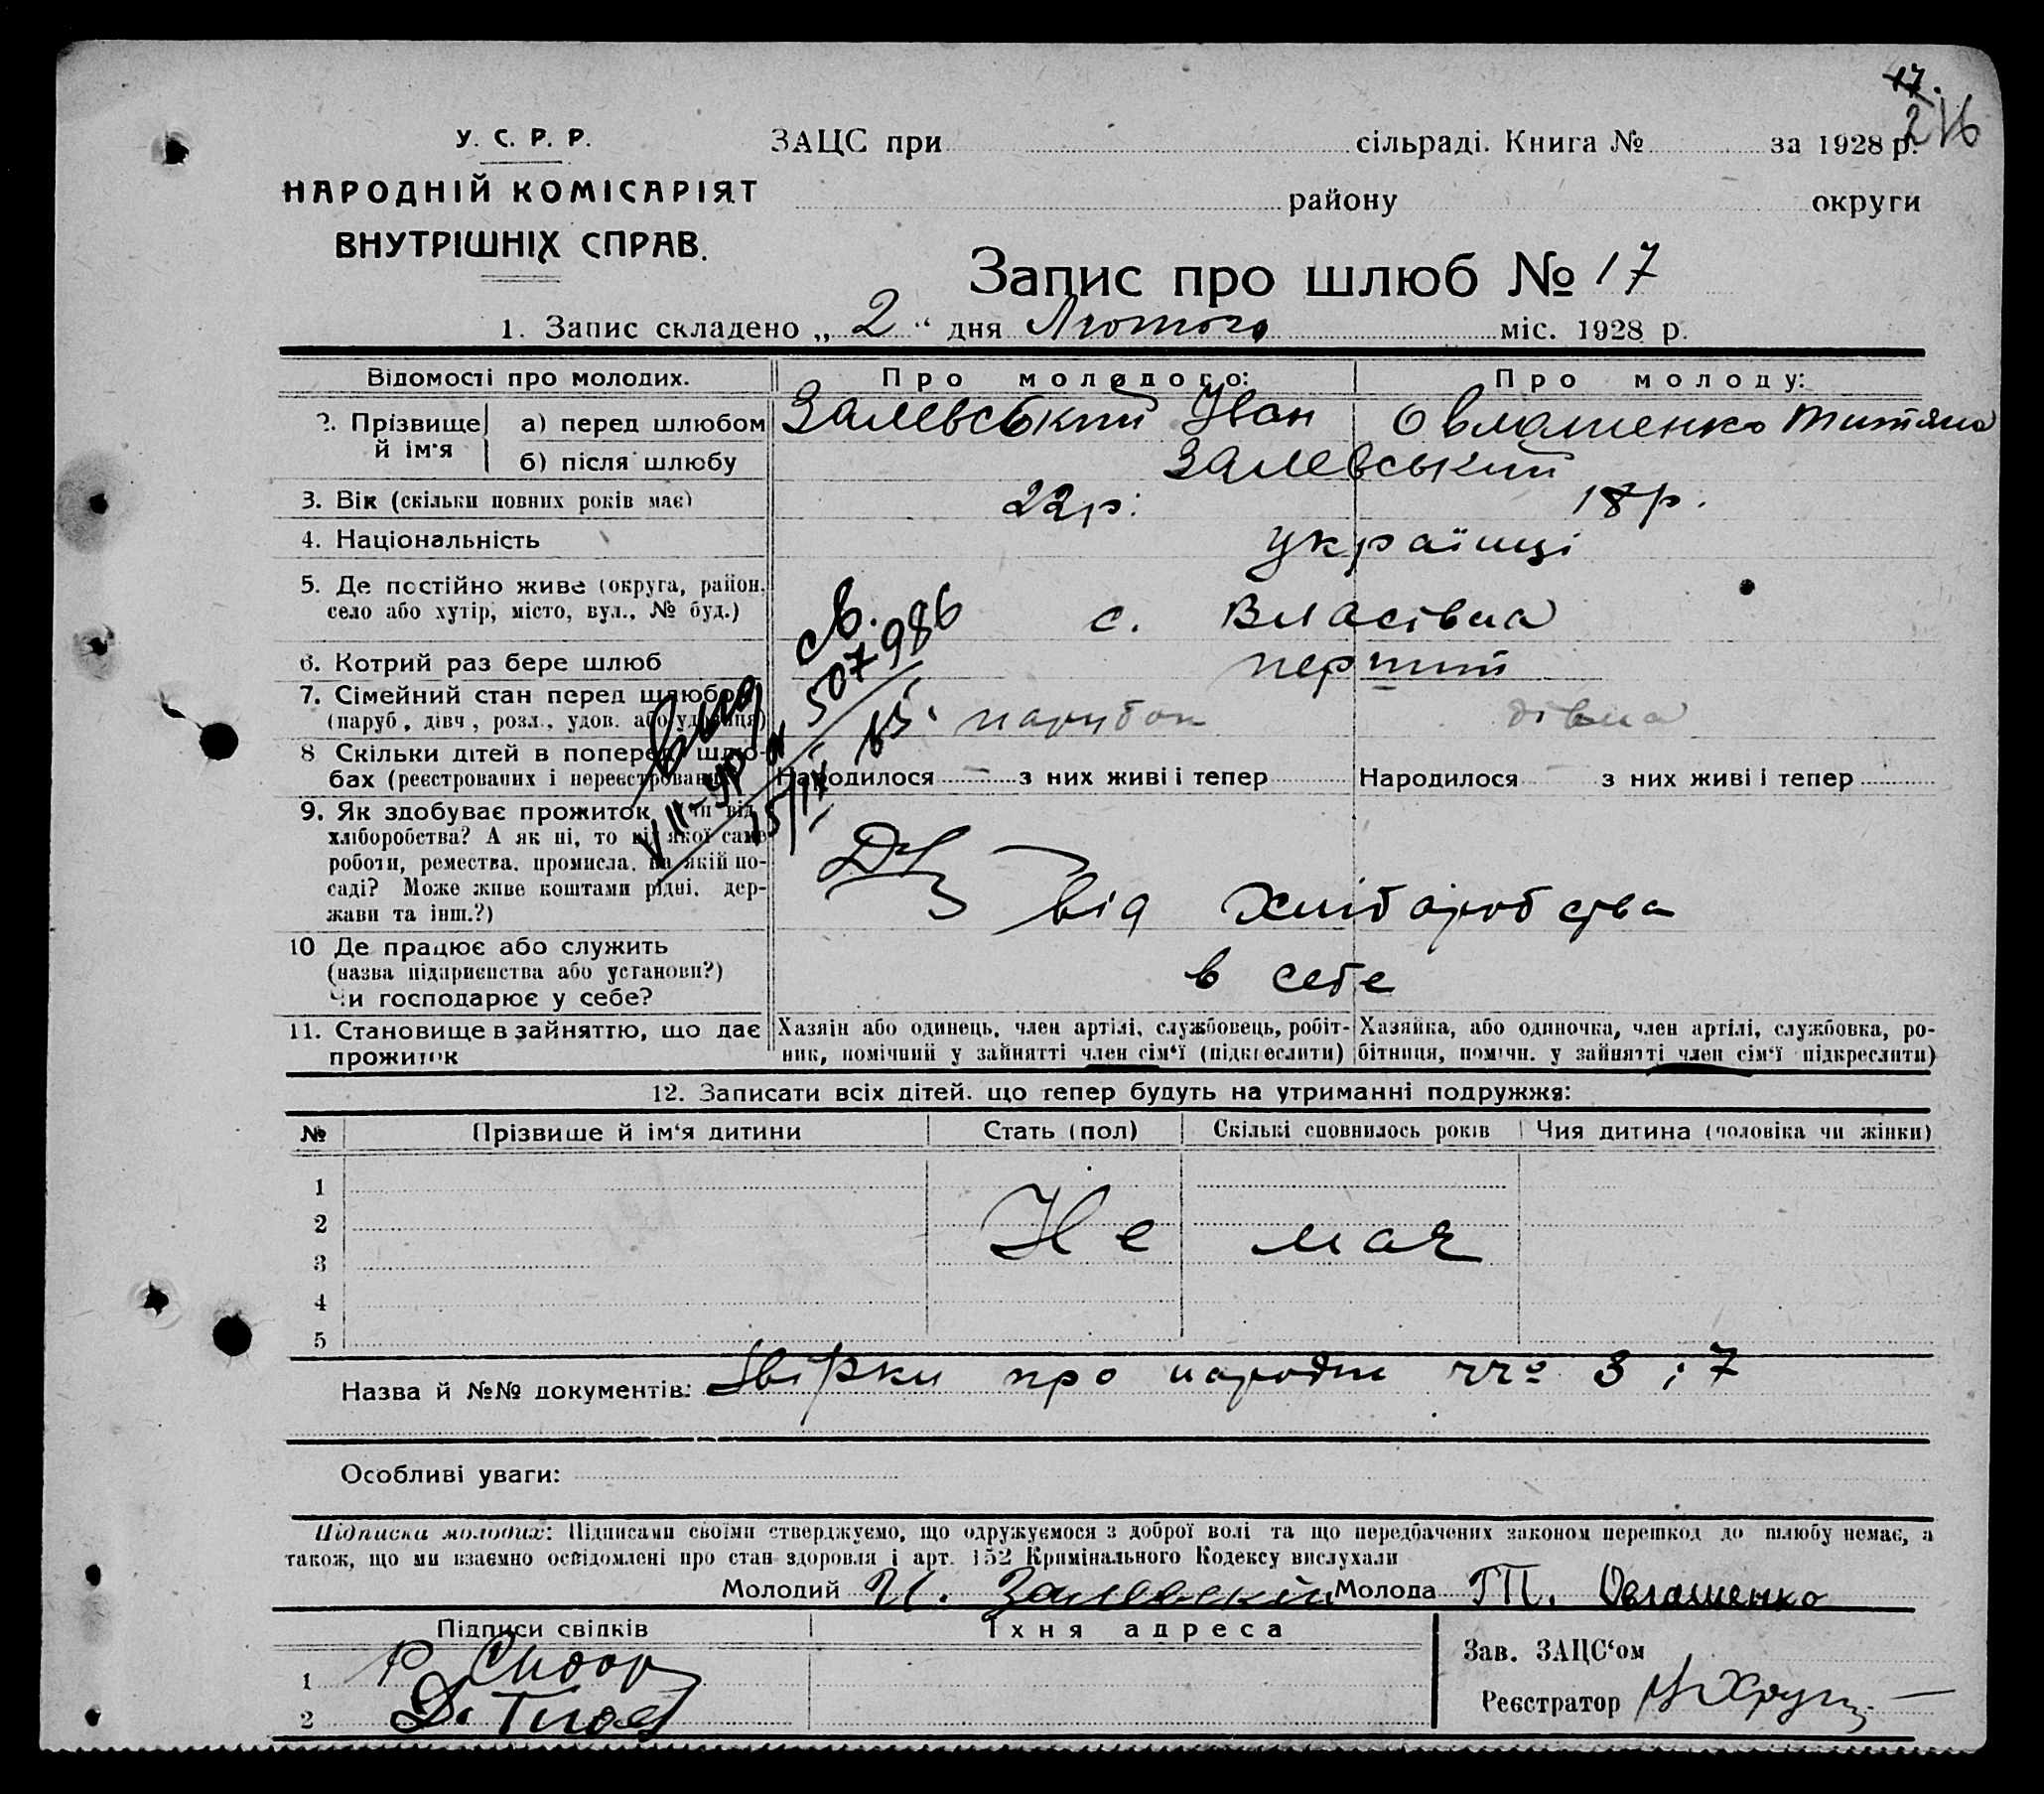 17.
216
У. С. Р. Р.
НАРОДНІЙ КОМІСАРІЯТ
ВНУТРІШНІХ СПРАВ.
ЗАЦС при сільраді. Книга № за 1928 р.
району округи
Запис про шлюб № 17
1. Запис складено „ 2 “ дня Лютого міс. 1928 р.
Відомості про молодих. Про молодого: Про молоду:
2. Прізвище й ім'я а) перед шлюбом Залевський Іван Овлашенко Титяна
б) після шлюбу Залевський
3. Вік (скільки повних років має) 22 р. 18 р.
4. Національність українці
5. Де постійно живе (округа, район, село або хутір, місто, вул., № буд.) с. Власівка
6. Котрий раз бере шлюб перший
7. Сімейний стан перед шлюбом (паруб., дівч., розл., удов. або удовиця) парубок дівка
507986
8 Скільки дітей в поперед. шлюбах (реєстрованих і нереєстрованих) Народилося — з них живі і тепер Народилося — з них живі і тепер
9. Як здобуває прожиток, чи від хліборобства? А як ні, то від якої саме роботи, ремества, промисла, на якій посаді? Може живе коштами рідні, держави та інш.?) від хліборобства
10 Де працює або служить (назва підприємства або установи?) Чи господарює у себе? в себе
11. Становище в зайняттю, що дає прожиток Хазяїн або одинець, член артілі, службовець, робітник, помічний у зайнятті член сім'ї (підкреслити) Хазяйка, або одиночка, член артілі, службовка, робітниця, помічн. у зайнятті член сім'ї підкреслити)
12. Записати всіх дітей, що тепер будуть на утриманні подружжя:
№ Прізвише й ім'я дитини Стать (пол) Скількі сповнилось років Чия дитина (чоловіка чи жінки)
1
2 Не має
3
4
5
Назва й №№ документів: про народж 8 і 7
Особливі уваги:
Підписка молодих: Підписами своїми стверджуємо, що одружуємося з доброї волі та що передбачених законом перешкод до шлюбу немає, а
також, що ми взаємно освідомлені про стан здоровля і арт. 152 Кримінального Кодексу вислухали
Молодий И. Залевский Молода Т. Овлашенко
Підписи свідків Їхня адреса
Зав. ЗАЦС'ом
1
Реєстратор
2